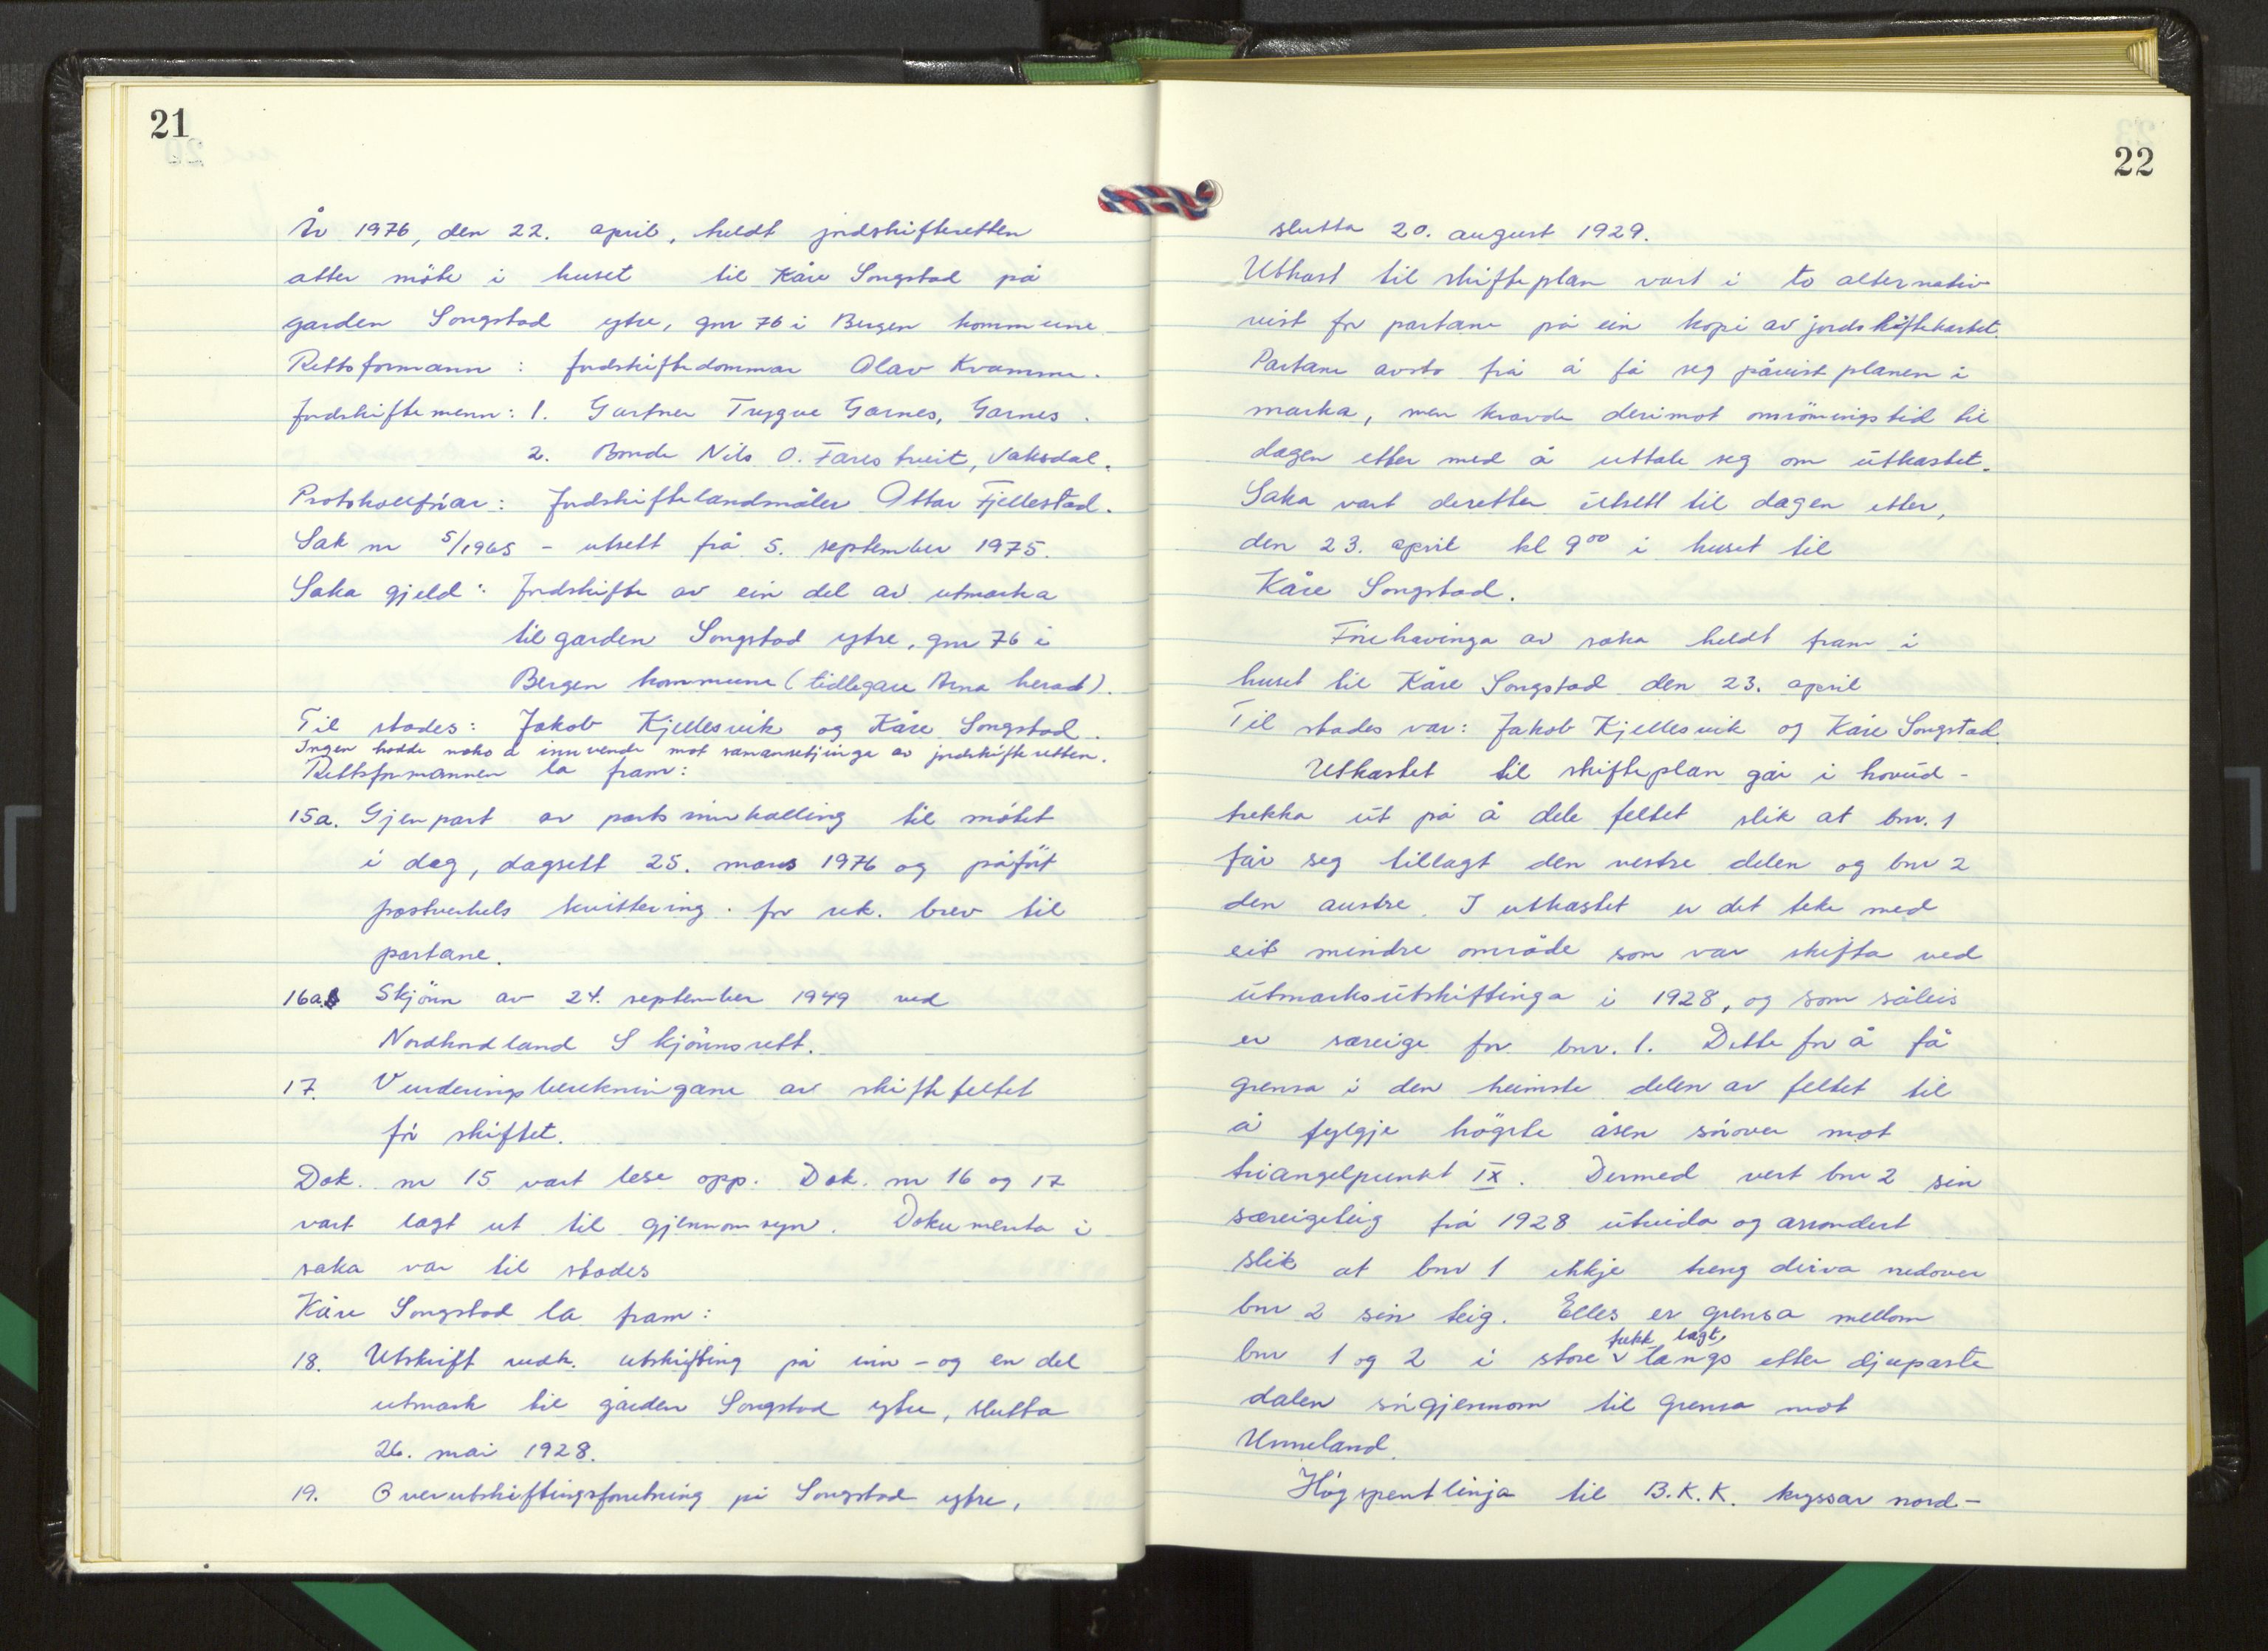 21
År 1976, den 22. april, heldt jordskifteretten
atter möte i huset til Kåre Songstad på
garden Songstad ytre, gnr 76 i Bergen kommune
Rettsformann: Jordskiftedommar Olav Kvamme.
Jordskiftemenn: 1. Gartner Trygve Garnes, Garnes.
2. Bonde Nils O. Farestveit, Vaksdal.
Protokollförar: Jordskiftelandmåler Ottar Fjellestad.
Sak nr 5/1965 - utsett frå 5. september 1975.
Saka gjeld: Jordskifte av ein del av utmarka
til garden Songstad ytre, gnr 76 i
Bergen kommune (tidlegare Arna herad).
Til stades: Jakob Kjellesvik og Kåre Songstad.
Ingen hadde noko å innvende mot samansetjinga av jordskifteretten.
Rettsformannen la fram:
15a. Gjenpart av partsinnkalling til mötet
i dag, dagsett 25. mars 1976 og påfört
postverkets kvittering for rek. brev til
partane.
16a. Skjönn av 24. september 1949 ved
Nordhordland Skjönnsrett.
17. Vurderingsberekningane av skiftefeltet
för skiftet.
Dok. nr 15 vart lese opp. Dok. nr 16 og 17
vart lagt ut til gjennomsyn. Dokumenta i
saka var til stades
Kåre Songstad la fram:
18. Utskrift vedk. utskifting på inn- og en del
utmark til gården Songstad ytre, slutta
26. mai 1928.
19. Overutskiftingsforretning på Songstad ytre,
22
slutta 20. august 1929.
Utkast til skifteplan vart i to alternativ
vist for partane på ein kopi av jordskiftekartet.
Partane avsto frå å få seg påvist planen i
marka, men kravde derimot omrömingstid til
dagen etter med å uttale seg om utkastet.
Saka vart deretter utsett til dagen etter,
den 23. april kl 9⁰⁰ i huset til
Kåre Songstad.
Förehavinga av saka heldt fram i
huset til Kåre Songstad den 23. april
Til stades var: Jakob Kjellesvik og Kåre Songstad.
Utkastet til skifteplan går i hovud-
trekka ut på å dele feltet slik at bnr. 1
får seg tillagt den vestre delen og bnr 2
den austre. I utkastet er det teke med
eit mindre område som var skifta ved
utmarksutskiftinga i 1928, og som såleis
er særeige for bnr. 1. Dette for å få
grensa i den heimste delen av feltet til
å fylgje högste åsen sörover mot
triangelpunkt IX. Dermed vert bnr 2 sin
særeigeteig frå 1928 utvida og arrondert
slik at bnr 1 ikkje treng drive nedover
bnr 2 sin teig. Elles er grensa mellom
bnr 1 og 2 i store trekk lagt langs etter djupaste
dalen sörgjennom til grensa mot
Unneland.
Högspentlinja til B.K.K. kryssar nord-